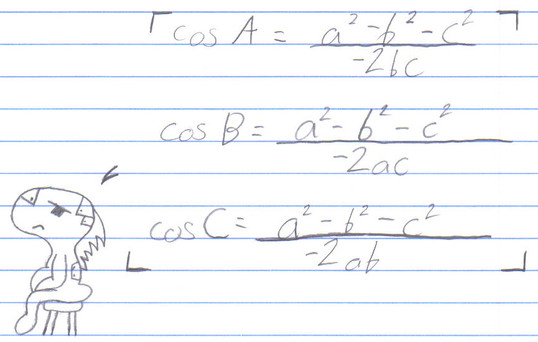 cos A = a² - b² - c² / -2bc
cos B = a² - b² - c² / -2ac
cos C = a² - b² - c² / -2ab